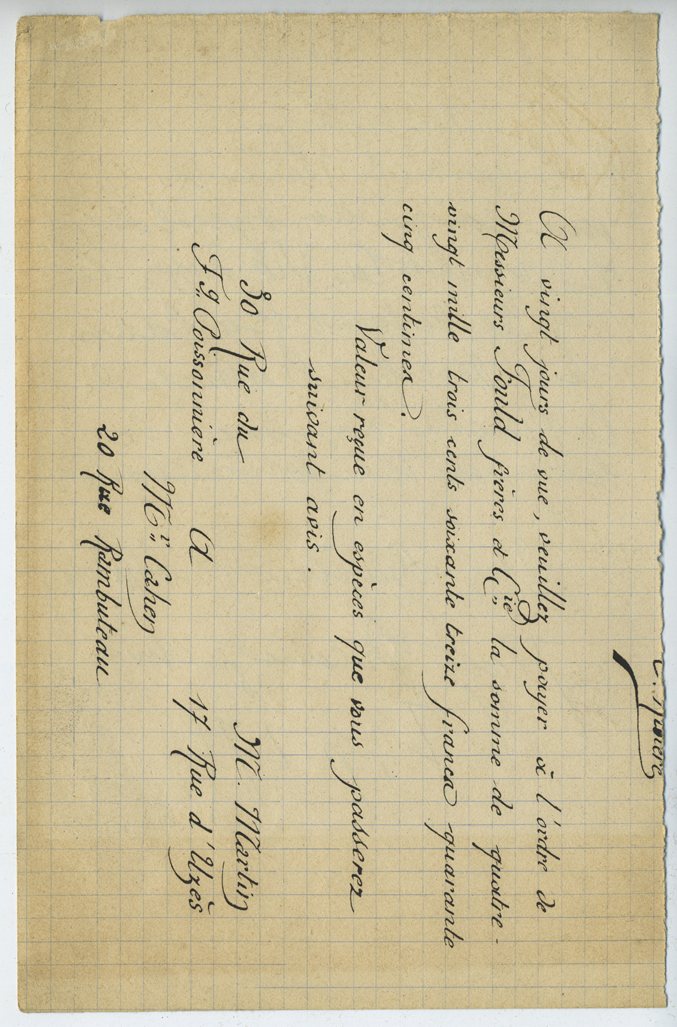 A vingt jours de vue, veuillez payer à l'ordre de
Messieurs Fould frères et Cie la somme de quatre-
vingt mille trois cents soixante treize francs quarante
cinq centimes.
Valeur reçue en espèces que vous passerez
suivant avis.
30 Rue du
Fg. Poissonnière
M. Martin
17 Rue d'Uzès
A
Mr Cahen
20 Rue Rambuteau